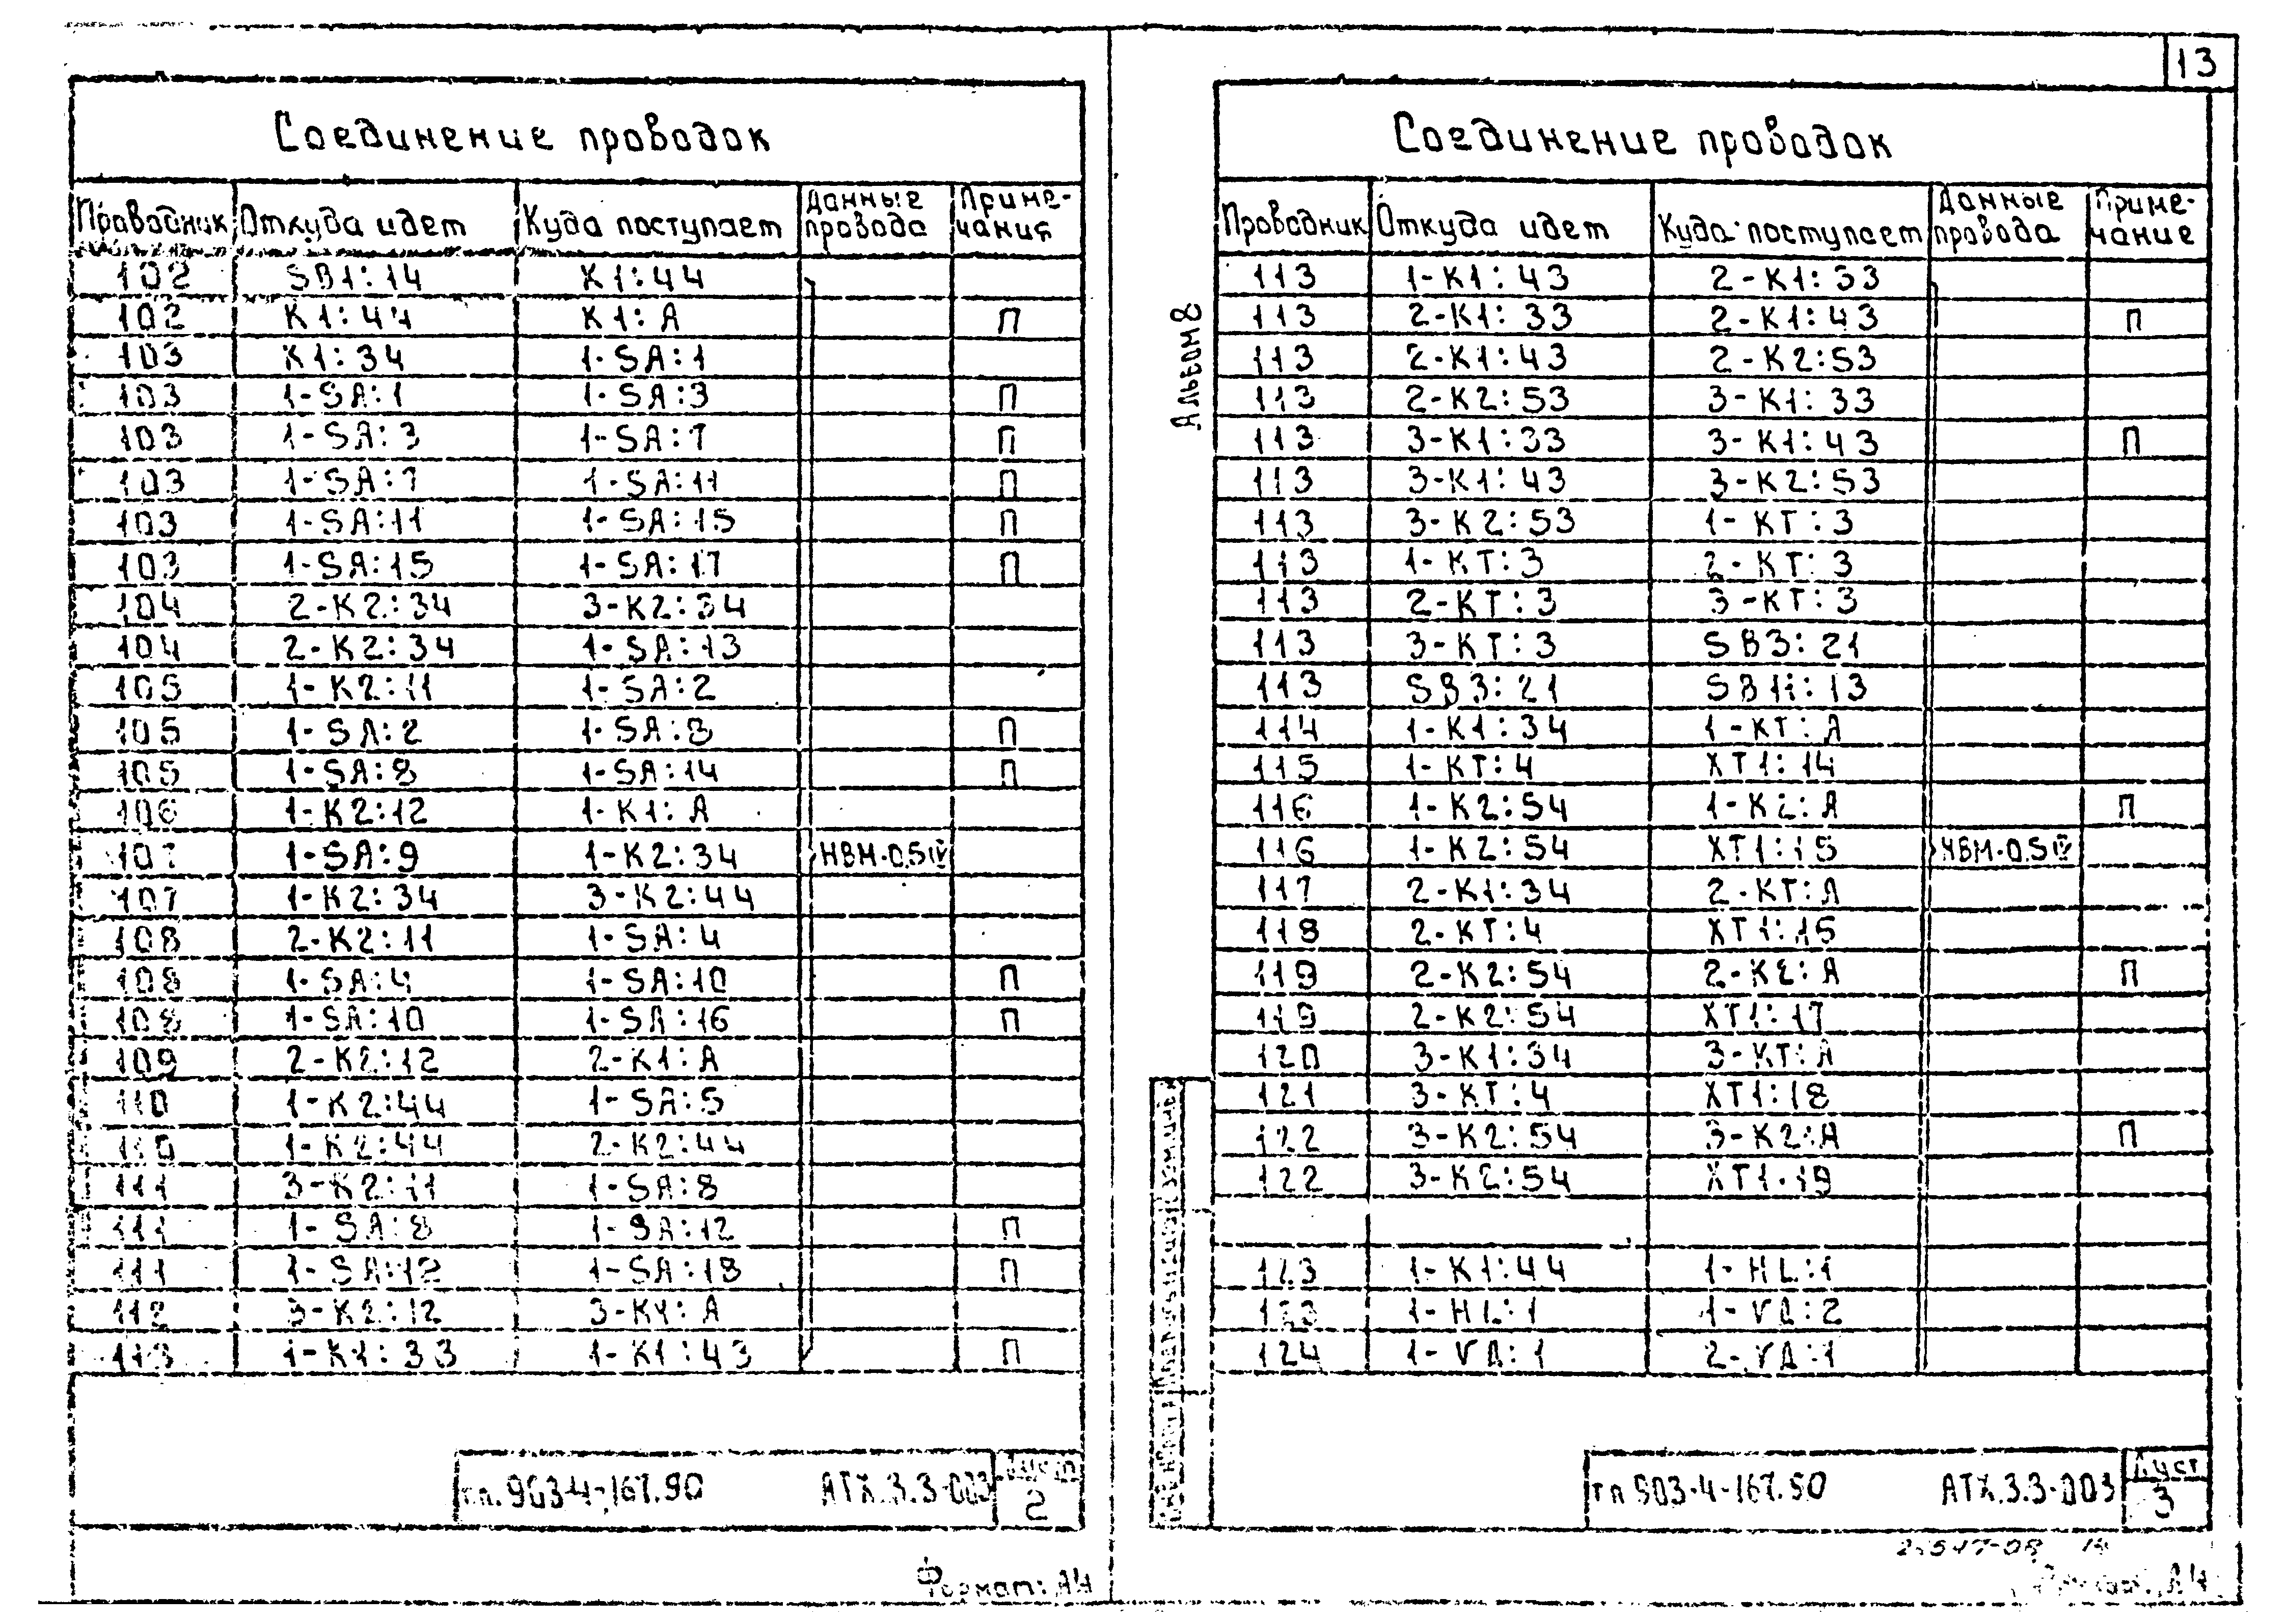 13
Соединение проводок
Проводник Откуда идет Куда поступает Данные провода Примечания
102 SB1:14 K1:44
102 K1:44 K1:A П
103 K1:34 1-SA:1
103 1-SA:1 1-SA:3 П
103 1-SA:3 1-SA:7 П
103 1-SA:7 1-SA:11 П
103 1-SA:11 1-SA:15 П
103 1-SA:15 1-SA:17 П
104 2-K2:34 3-K2:34
104 2-K2:34 1-SA:13
105 1-K2:11 1-SA:2
105 1-SA:2 1-SA:8 П
105 1-SA:8 1-SA:14 П
106 1-K2:12 1-K1:A
107 1-SA:9 1-K2:34 НВМ-0.5IV
107 1-K2:34 3-K2:44
108 2-K2:11 1-SA:4
108 1-SA:4 1-SA:10 П
108 1-SA:10 1-SA:16 П
109 2-K2:12 2-K1:A
110 1-K2:44 1-SA:5
110 1-K2:44 2-K2:44
111 3-K2:11 1-SA:8
111 1-SA:8 1-SA:12 П
111 1-SA:12 1-SA:18 П
112 3-K2:12 3-K1:A
113 1-K1:33 1-K1:43 П
тп.903-4-167.90 АТХ.3.3-003 Лист 2
Формат: А4
Альбом 8
Соединение проводок
Проводник Откуда идет Куда поступает Данные провода Примечание
113 1-K1:43 2-K1:33
113 2-K1:33 2-K1:43 П
113 2-K1:43 2-K2:53
113 2-K2:53 3-K1:33
113 3-K1:33 3-K1:43 П
113 3-K1:43 3-K2:53
113 3-K2:53 1-KT:3
113 1-KT:3 2-KT:3
113 2-KT:3 3-KT:3
113 3-KT:3 SB3:21
113 SB3:21 SB11:13
114 1-K1:34 1-KT:A
115 1-KT:4 XT1:14
116 1-K2:54 1-K2:A П
116 1-K2:54 XT1:15 НВМ-0.5IV
117 2-K1:34 2-KT:A
118 2-KT:4 XT1:15
119 2-K2:54 2-K2:A П
119 2-K2:54 XT1:17
120 3-K1:34 3-KT:A
121 3-KT:4 XT1:18
122 3-K2:54 3-K2:A П
122 3-K2:54 XT1:19
123 1-K1:44 1-HL:1
123 1-HL:1 1-VD:2
124 1-VD:1 2-VD:1
тп 903-4-167.90 АТХ.3.3-003 Лист 3